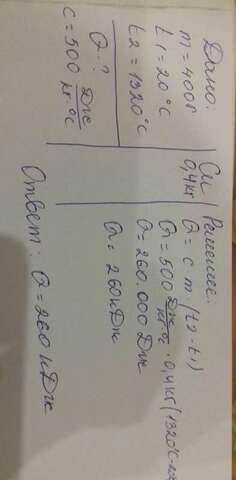 Дано:
m = 400г
t1 = 20°C
t2 = 1320°C
Q - ?
c = 500 Дж/кг·°C
Си
0,4кг
Решение:
Q = c · m · (t2 - t1)
Q = 500 Дж/кг°C · 0,4кг (1320°C - 20
Q = 260.000 Дж
Q = 260 кДж
Ответ: Q = 260 кДж